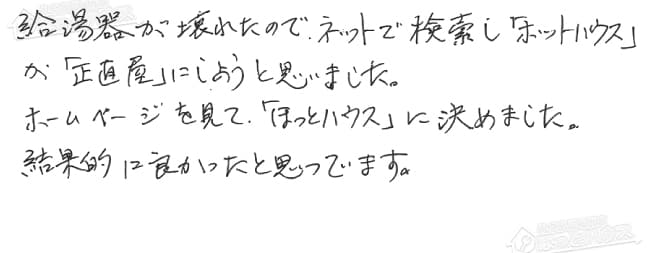 給湯器が壊れたので、ネットで検索し「ホットハウス」
か「正直屋」にしようと思いました。
ホームページを見て、「ほっとハウス」に決めました。
結果的に良かったと思ってます。